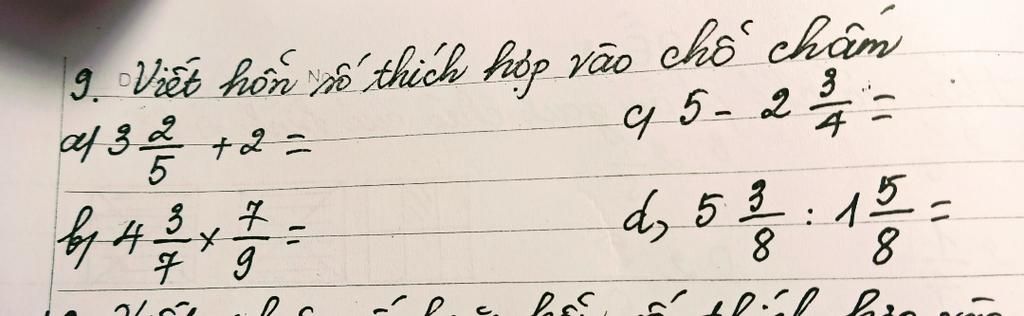 9. Viết hỗn số thích hợp vào chỗ chấm
a) 3 2/5 + 2 =
c) 5 - 2 3/4 =
b) 4 3/7 × 7/9 =
d) 5 3/8 : 1 5/8 =